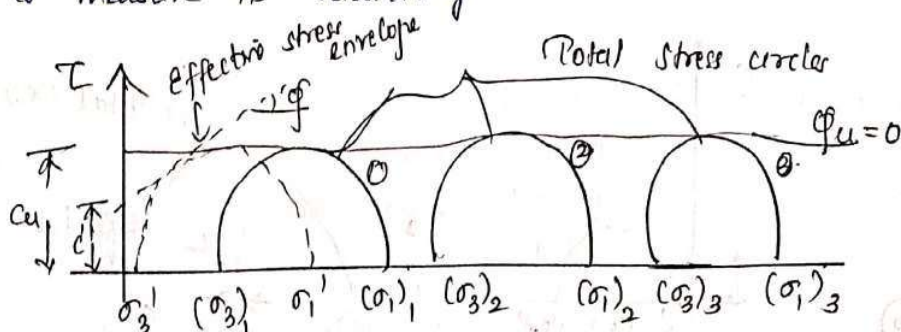 a measure is
effective stress
envelope
Total stress circles
τ
φ'
φu = 0
① ② ③
Cu
c'
σ3' (σ3)1 σ1' (σ1)1 (σ3)2 (σ1)2 (σ3)3 (σ1)3